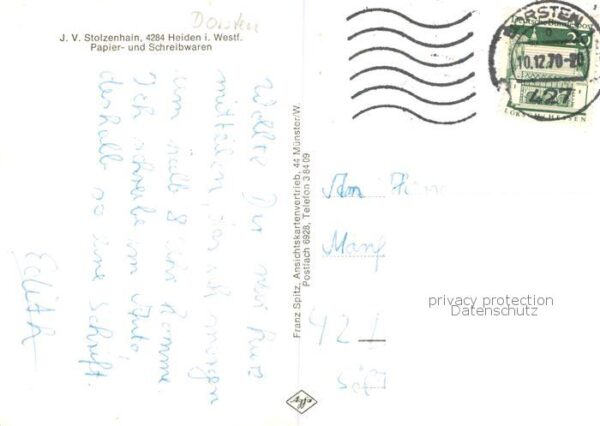 Dorsten
J. V. Stolzenhain, 4284 Heiden i. Westf.
Papier- und Schreibwaren
Wollte Dir nur kurz
mitteilen, das ich morgen
um halb 8 Uhr komme.
Ich schreibe im Auto,
deshalb so eine Schrift.
Edith
Franz Spitz, Ansichtskartenvertrieb, 44 Münster/W.
Postfach 6928, Telefon 3 84 09
DORSTEN
10.12.70-20
427
20
LORSCH/HESSEN
An
Manf
42
privacy protection
Datenschutz